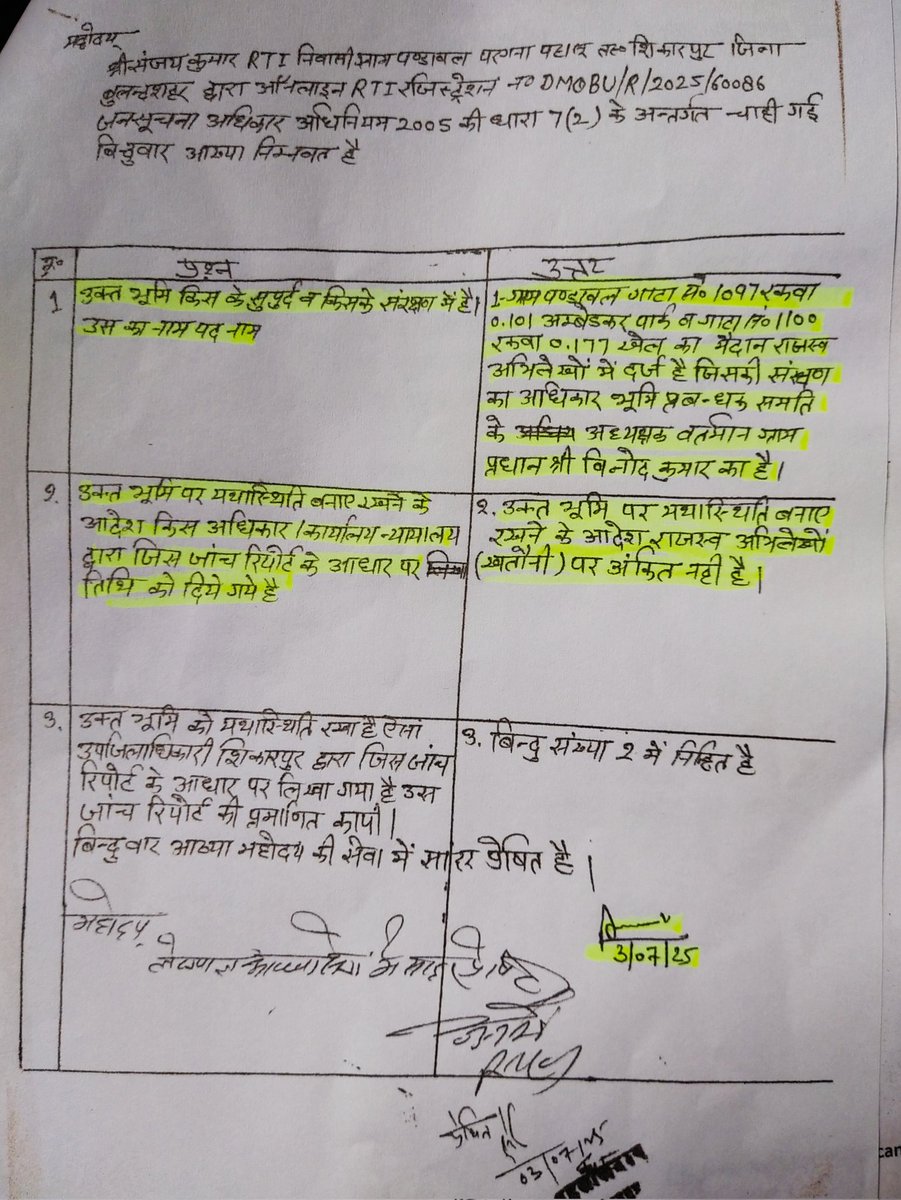 महोदय
श्री संजय कुमार RTI निवासी ग्राम पण्डावल परगना पहासू तह० शिकारपुर जिला
बुलन्दशहर द्वारा ऑनलाइन RTI रजिस्ट्रेशन न० DMOBU/R/2025/60086
जनसूचना अधिकार अधिनियम 2005 की धारा 7(2) के अन्तर्गत चाही गई
बिन्दुवार आख्या निम्नवत है
क्र० प्रश्न उत्तर
1 उक्त भूमि किस के सुपुर्द व किसके संरक्षण में है।
उस का नाम पद नाम
1- ग्राम पण्डावल गाटा सं० 1097 रकवा
0.101 अम्बेडकर पार्क व गाटा सं० 1100
रकवा 0.177 खेल का मैदान राजस्व
अभिलेखों में दर्ज है जिसकी संरक्षण
का अधिकार भूमि प्रबन्धक समति
के अध्यक्षक वर्तमान ग्राम
प्रधान श्री विनोद कुमार का है।
2. उक्त भूमि पर यथास्थिति बनाए रखने के
आदेश किस अधिकार/कार्यालय न्यायालय
द्वारा जिस जांच रिपोर्ट के आधार पर
तिथि को दिये गये है
2. उक्त भूमि पर यथास्थिति बनाए
रखने के आदेश राजस्व अभिलेखों
(खतौनी) पर अंकित नही है।
3. उक्त भूमि को यथास्थिति रखा है ऐसा
उपजिलाधिकारी शिकारपुर द्वारा जिस जांच
रिपोर्ट के आधार पर लिखा गया है उस
जांच रिपोर्ट की प्रमाणित कापी।
3. बिन्दु संख्या 2 में निहित है
बिन्दुवार आख्या महोदय की सेवा में सादर प्रेषित है।
3/07/25
महोदय
03/07/25